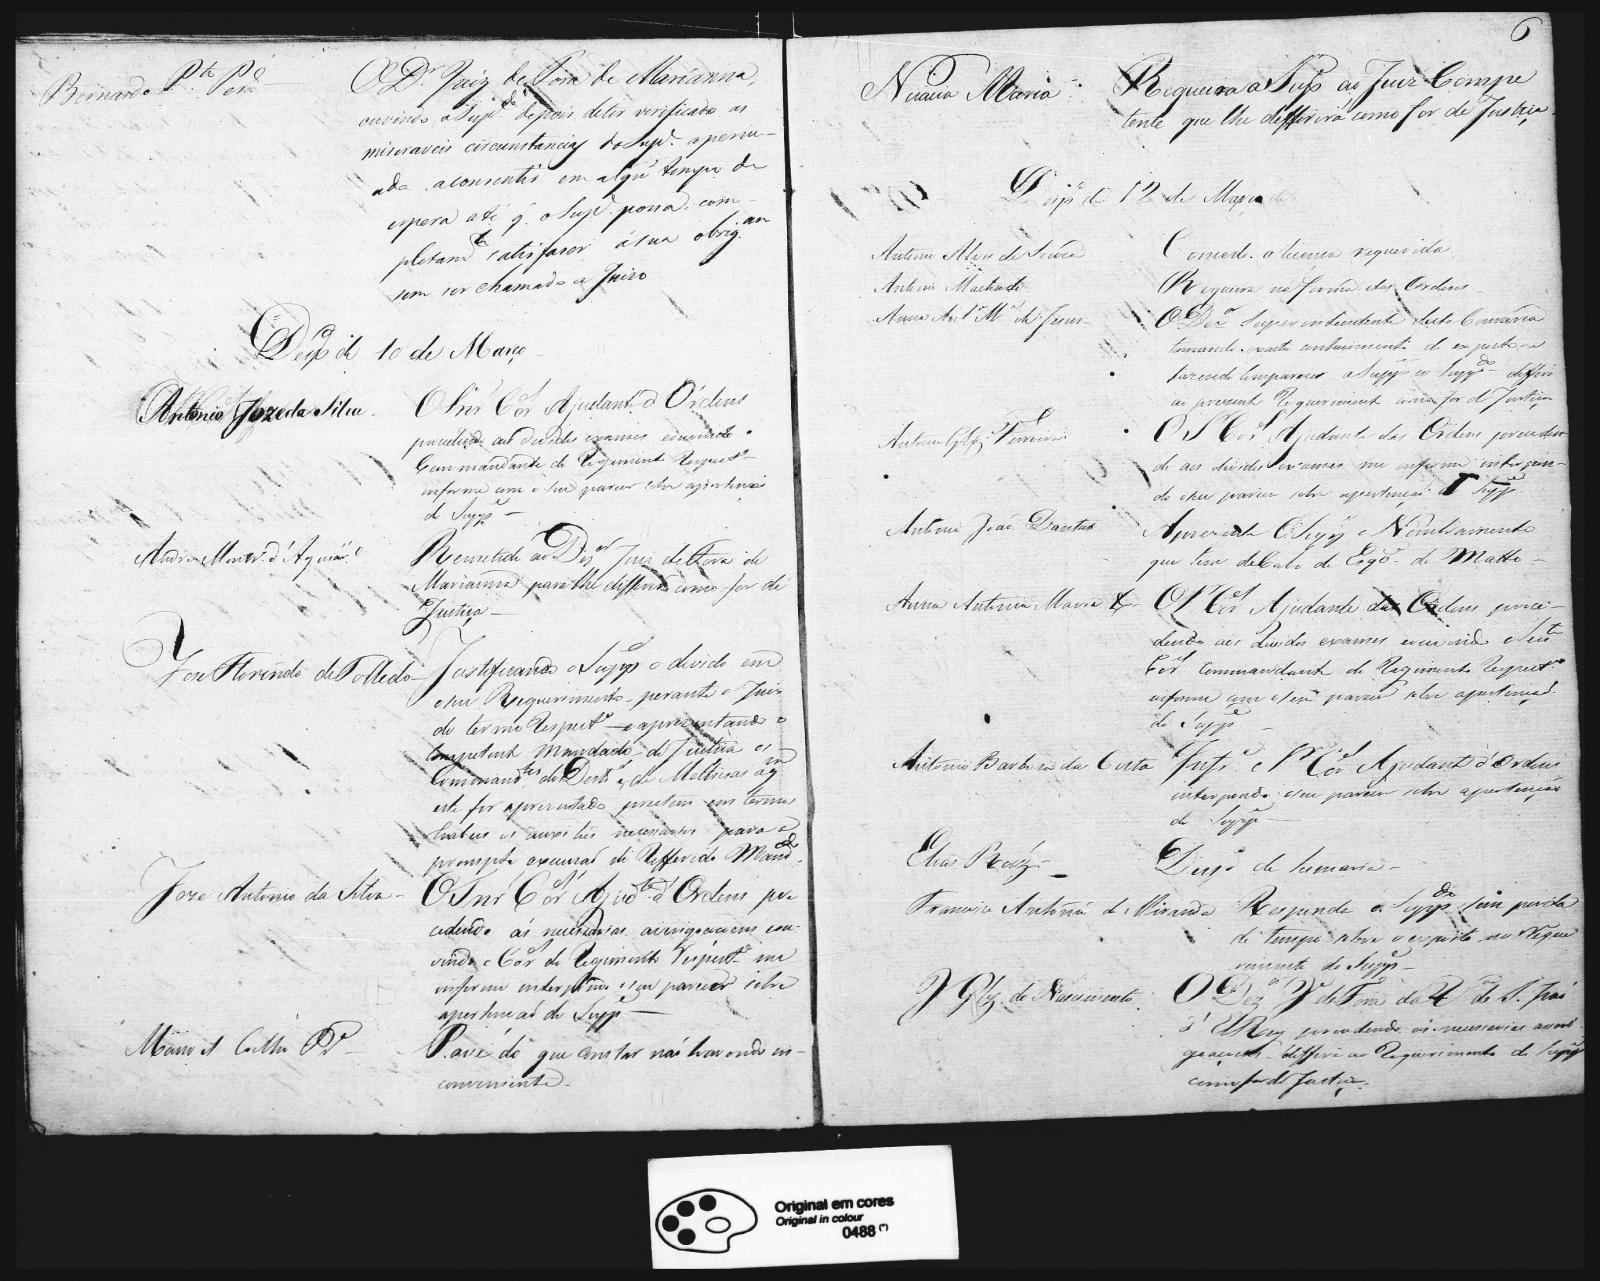 Bernardo P.to Per.a
O D.r Juiz de Fora de Marianna,
ouvindo o Sup.de depois deter verificado as
miseraveis circunstancias do Sup.e
ada aconsentir em algũ tempo de
espera até q. o Sup.e possa com-
pletam.te satisfaser á sua obrig.am
sem ser chamado a Juizo
Desp.o d 10 de Março
Antonio Joze da Silva
O Snr Cor.el Ajudante d'Ordens
procedendo aos devidos exames e ouvindo o
Commandante do Regimento Respect.o
informe com o seu parecer sobre apertençaõ
do Supp.e
Andre Mont.ro d'Aguiar
Remetido ao Dez.or Juiz de Fora de
Marianna para lhe differir como for de
Justiça
Joze Florindo de Tolledo
Justificando o Supp.e o devido em
o seu Requerimento perante o Juiz
do termo Respect.o e apresentando o
Competente Mandado de Justiça os
Command.tes do Destr.o e de Mellicias aq.m
este for apresentado prestem em termos
habeis os auxilios necessarios para a
prompta execuçaõ do Refferido Mand.do
Joze Antonio da Silva
O Snr Cor.el Ajud.te d'Ordens pro
cedendo ás necessarias averiguacoens eou-
vindo o Cor.el do Regimento Respect.o me
informe interpondo o seu parecer sobre
apertencaõ do Supp.e
Manoel Coelho R.o
Passe do que constar naõ havendo in-
conveniente.
6
Maria
Requeira a Sup.e ao Juiz Compe
tente que lhe differirá como for de Justiça
Desp.o d 12 de Março
Antonio Alves de Souza
Concedo a licença requerida
Antonio Machado
Requeira na forma das Ordens
Anna Ant.a M.a de Jesus
O Dez.or Superintendente desta Comarca
tomando exacto conhecimento do exposto e
fazendo Comparecer a Supp.e eo Supp.do differi
ao prezente Requerimento como for de Justiça
Antonio Glz. Ferreira
O S.r Cor.el Ajudante das Ordens proceden-
do aos devidos exames me informe interpon-
do o seu parecer sobre apertençaõ do Supp.e
Antonio Joaõ Dantas
Aprezente O Supp.e o Nombramento
que tem de Cabo de Esq.o do Matto
Anna Antonia Maria &
O S.r Cor.el Ajudante das Ordens proce-
dendo aos devidos exames e ouvindo o Ten.te
Cor.el Commandante do Regimento Respect.o
informe com o seu parecer sobre apertençaõ
do Supp.e
Antonio Barboza da Costa
Inf.e o S.r Cor.el Ajudante d'Ordens
interpondo o seu parecer sobre apertençaõ
do Supp.e
Elias Roiz
Desp.o de Sumaria
Francisco Antonio de Miranda
Responda o Supp.do sem perda
de tempo sobre o exposto no Reque
rimento do Supp.e
J Glz. do Nascimento
O Dez.or J.z de Fora da V.a de S. Joaõ
d'ElRey procedendo ás necessarias averi-
guaçoens differi ao Requerimento do Supp.e
como for de Justiça.
Original em cores
Original in colour
0488 (*)